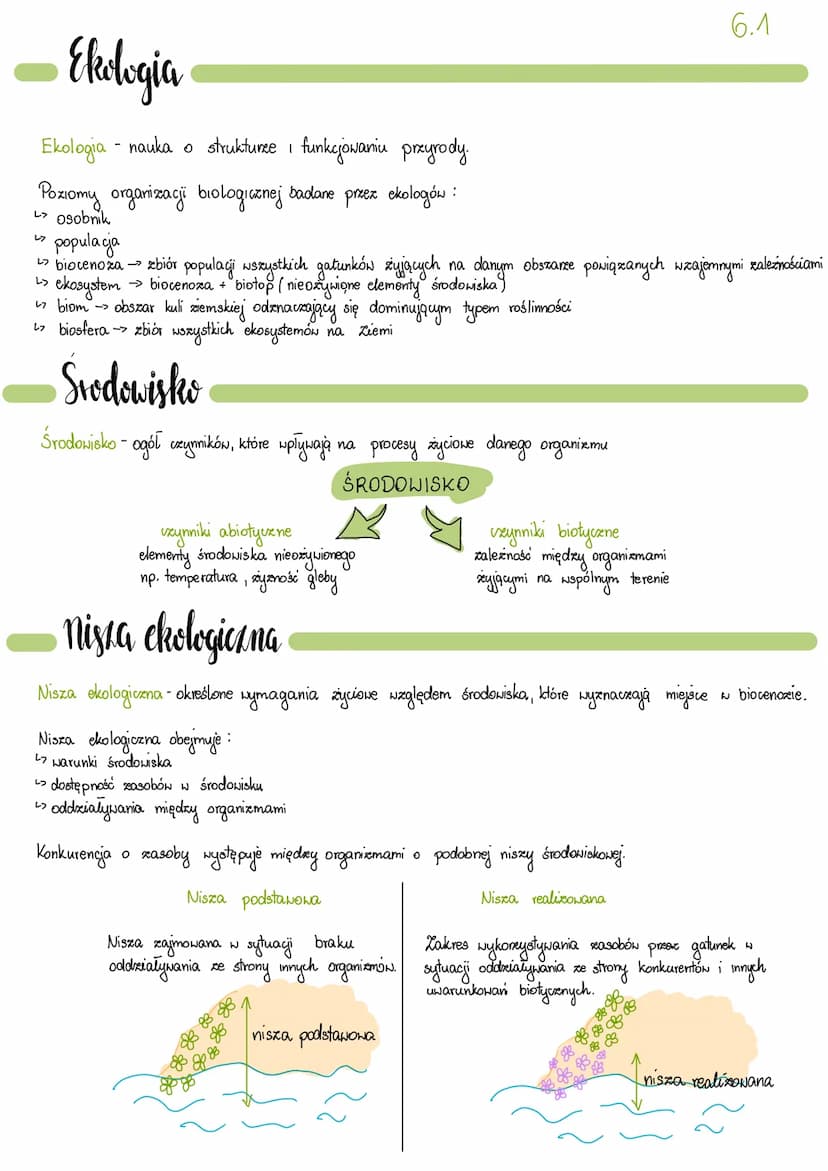 6.1
Ekologia
Ekologia - nauka o strukturze i funkcjowaniu przyrody.
Poziomy organizacji biologicznej badane przez ekologów :
↳ osobnik
↳ populacja
↳ biocenoza → zbiór populacji wszystkich gatunków żyjących na danym obszarze powiązanych wzajemnymi zależnościami
↳ ekosystem → biocenoza + biotop ( nieożywione elementy środowiska )
↳ biom → obszar kuli ziemskiej odznaczający się dominującym typem roślinności
↳ biosfera → zbiór wszystkich ekosystemów na Ziemi
Środowisko
Środowisko - ogół czynników, które wpływają na procesy życiowe danego organizmu
ŚRODOWISKO
czynniki abiotyczne
elementy środowiska nieożywionego
np. temperatura , żyzność gleby
czynniki biotyczne
zależność między organizmami
żyjącymi na wspólnym terenie
Nisza ekologiczna
Nisza ekologiczna - określone wymagania życiowe względem środowiska, które wyznaczają miejsce w biocenozie.
Nisza ekologiczna obejmuje :
↳ warunki środowiska
↳ dostępność zasobów w środowisku
↳ oddziaływania między organizmami
Konkurencja o zasoby występuje między organizmami o podobnej niszy środowiskowej.
Nisza podstawowa
Nisza zajmowana w sytuacji braku
oddziaływania ze strony innych organizmów.
nisza podstawowa
Nisza realizowana
Zakres wykorzystywania zasobów przez gatunek w
sytuacji oddziaływania ze strony konkurentów i innych
uwarunkowań biotycznych.
nisza realizowana